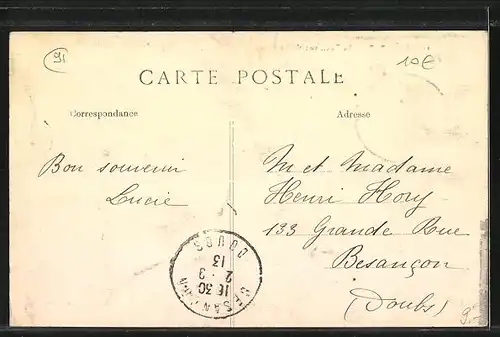 91
10€
CARTE POSTALE
Correspondance
Adresse
Bon souvenir
Lucie
M et Madame
Henri Hory
133 Grande Rue
Besançon
(Doubs)
BESANÇON
16 30
2 - 9
13
DOUBS
9.-